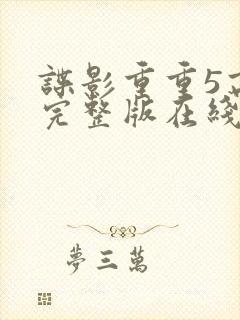 諜影重重5
完整版在綫
夢三萬